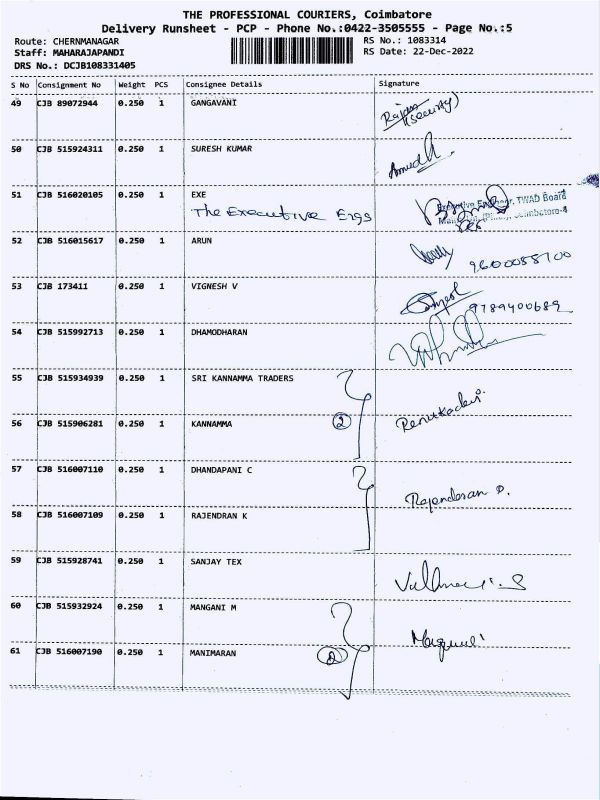 THE PROFESSIONAL COURIERS, Coimbatore
Delivery Runsheet - PCP - Phone No.:0422-3505555 - Page No.:5
Route: CHERNMANAGAR
RS No.: 1083314
Staff: MAHARAJAPANDI
RS Date: 22-Dec-2022
DRS No.: DCJB108331405
S No Consignment No Weight PCS Consignee Details Signature
49 CJB 89072944 0.250 1 GANGAVANI
(Security)
50 CJB 515924311 0.250 1 SURESH KUMAR
51 CJB 516020105 0.250 1 EXE
The Executive Engg
Executive Engineer, TWAD Board
Coimbatore-4
52 CJB 516015617 0.250 1 ARUN
53 CJB 173411 0.250 1 VIGNESH V
9789400689
54 CJB 515992713 0.250 1 DHAMODHARAN
55 CJB 515934939 0.250 1 SRI KANNAMMA TRADERS
56 CJB 515906281 0.250 1 KANNAMMA 2 Renukadevi
57 CJB 516007110 0.250 1 DHANDAPANI C
Rajendaran P.
58 CJB 516007109 0.250 1 RAJENDRAN K
59 CJB 515928741 0.250 1 SANJAY TEX
60 CJB 515932924 0.250 1 MANGANI M
61 CJB 516007190 0.250 1 MANIMARAN 2